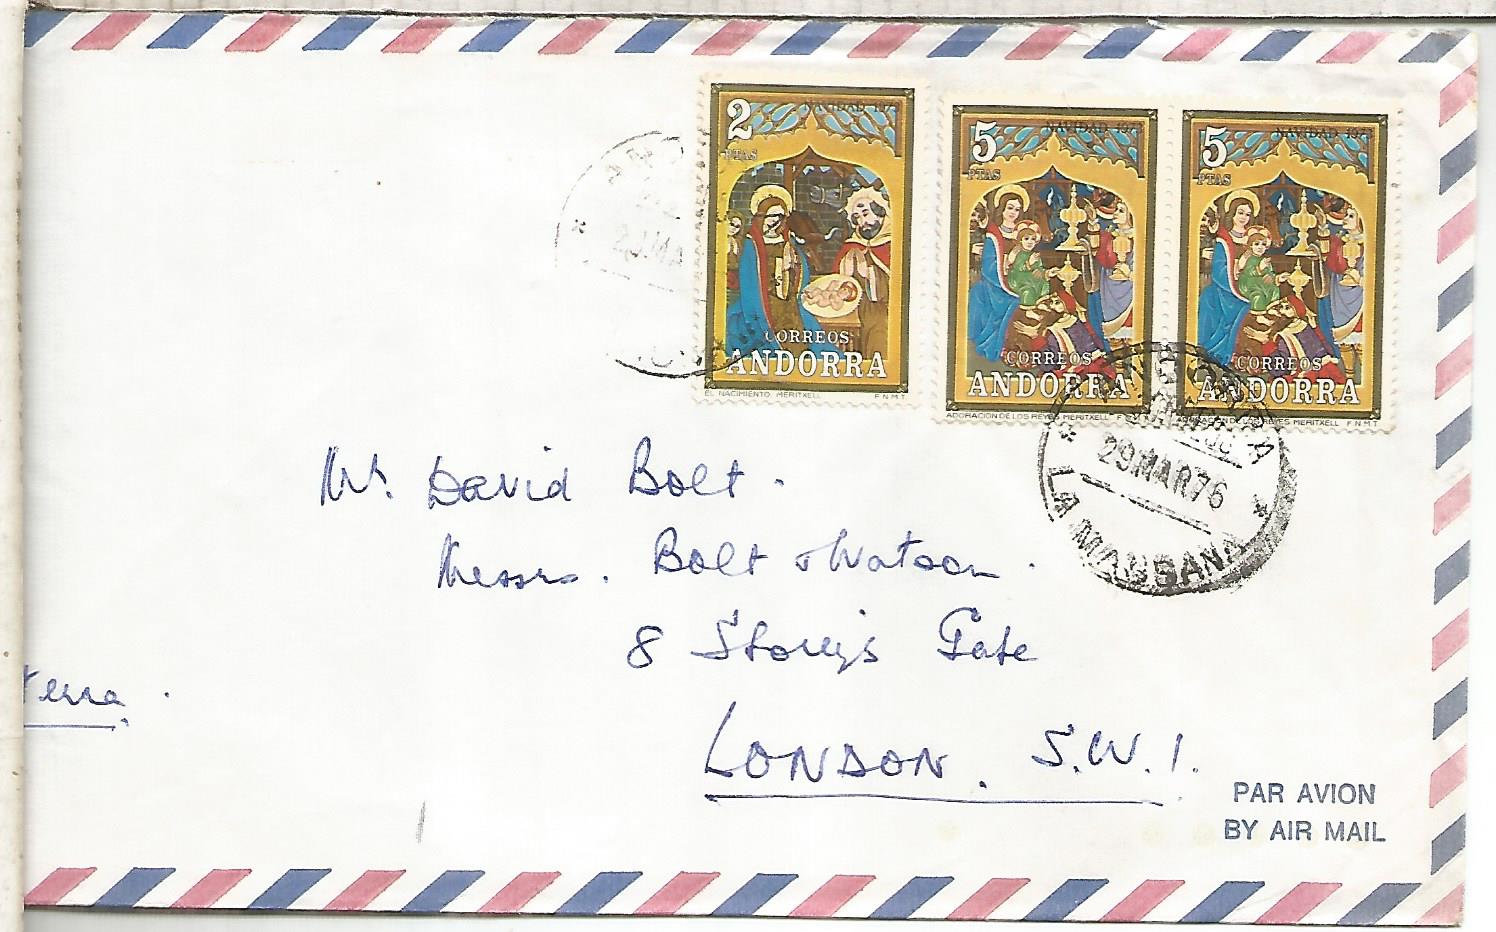 2
PTAS
NAVIDAD 1973
CORREOS
ANDORRA
EL NACIMIENTO. MERITXELL F.N.M.T.
5
PTAS
NAVIDAD 1973
CORREOS
ANDORRA
ADORACION DE LOS REYES MERITXELL F
5
PTAS
NAVIDAD 1973
CORREOS
ANDORRA
DE LOS REYES MERITXELL F.N.M.T.
29 MAR 76
LA MASSANA
Mr. David Bolt.
Messrs. Bolt & Watson.
8 Storey's Gate
terra.
LONDON. S.W.1.
PAR AVION
BY AIR MAIL